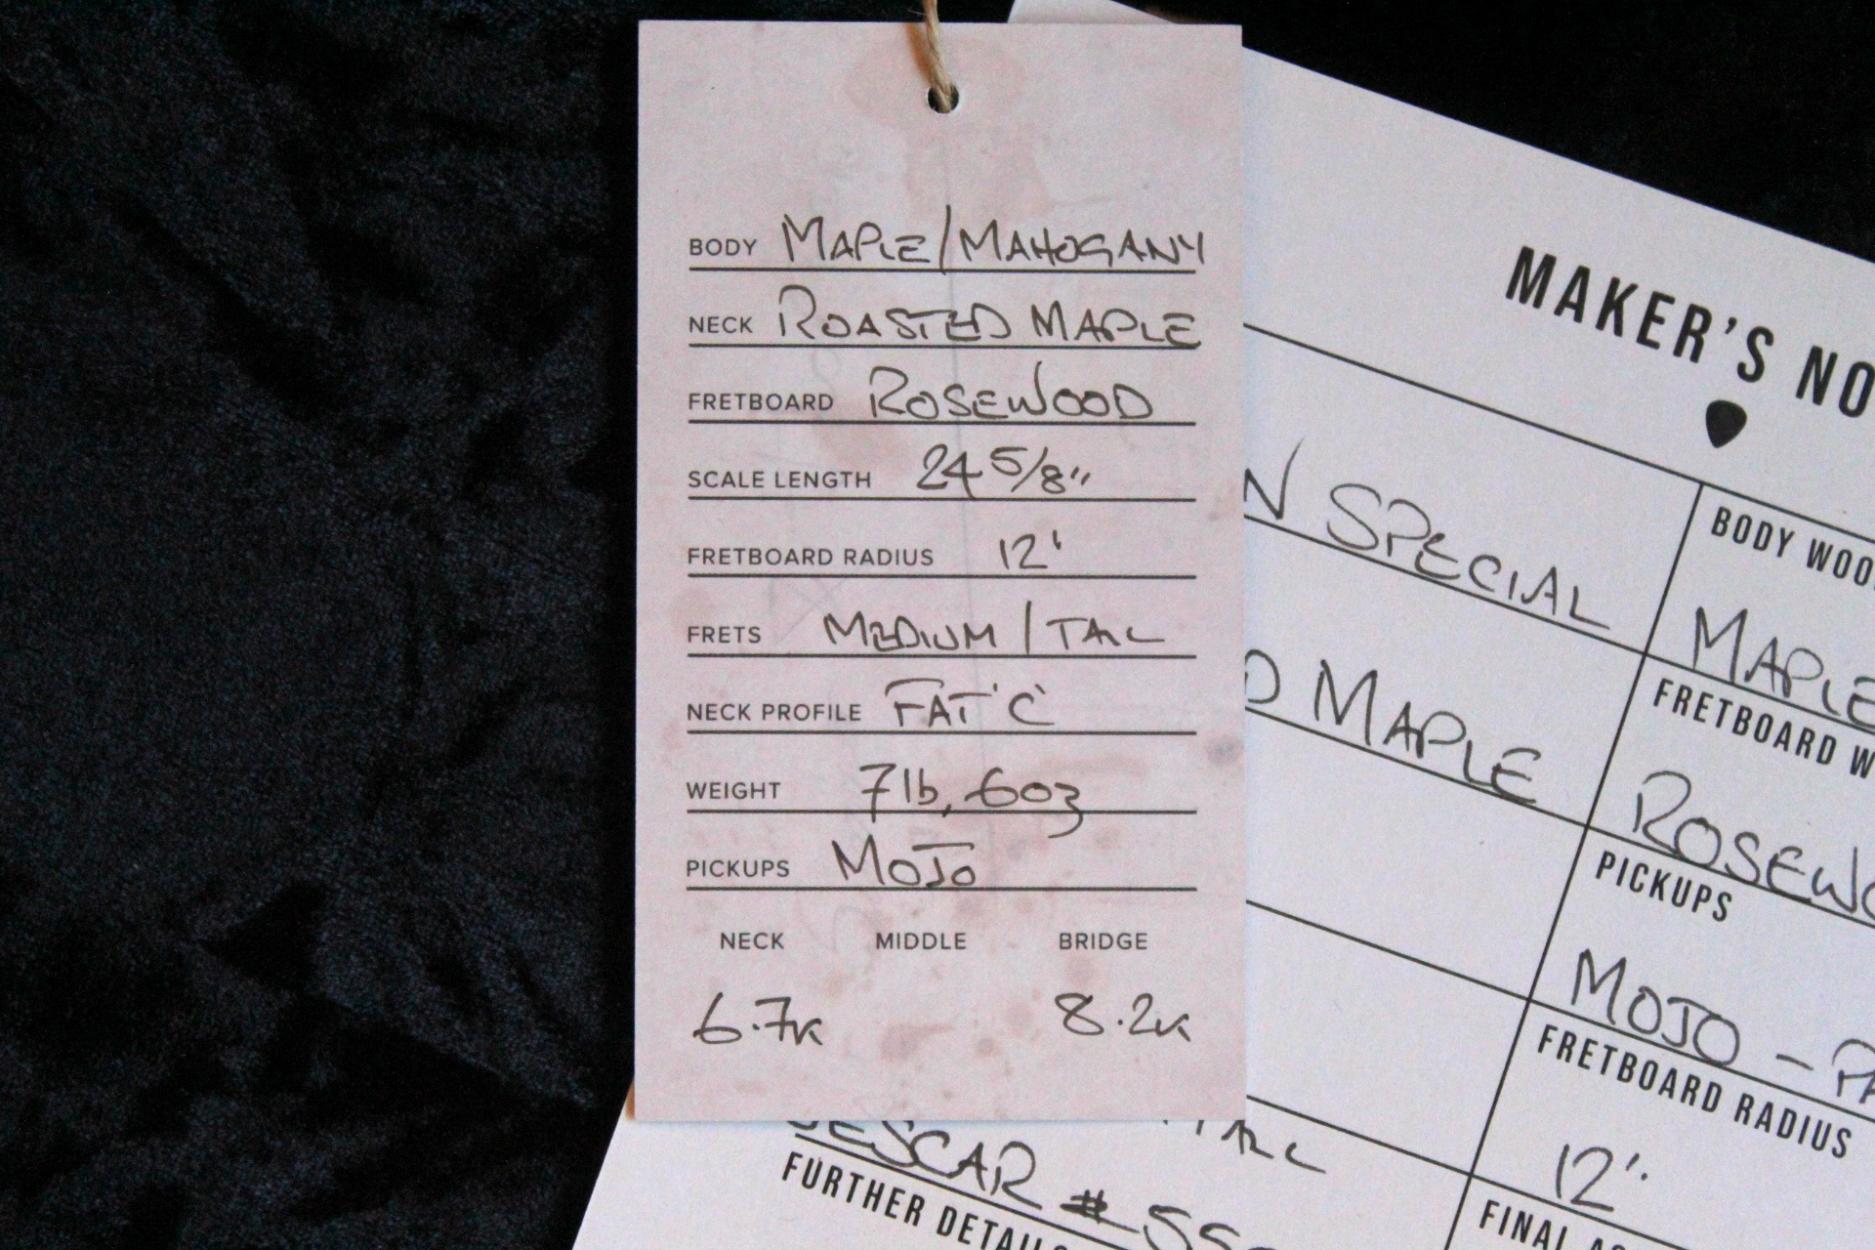 BODY MAPLE/MAHOGANY
NECK ROASTED MAPLE
FRETBOARD ROSEWOOD
SCALE LENGTH 24 5/8"
FRETBOARD RADIUS 12'
FRETS MEDIUM / TALL
NECK PROFILE FAT 'C'
WEIGHT 7lb, 6oz
PICKUPS MOJO
NECK MIDDLE BRIDGE
6.7K 8.2K
MAKER'S NO
N SPECIAL
BODY WOO
MAPLE
D MAPLE
FRETBOARD W
ROSEWO
PICKUPS
MOJO -
FRETBOARD RADIUS
12'
TALL
JESCAR #
FURTHER DETAILS
FINAL